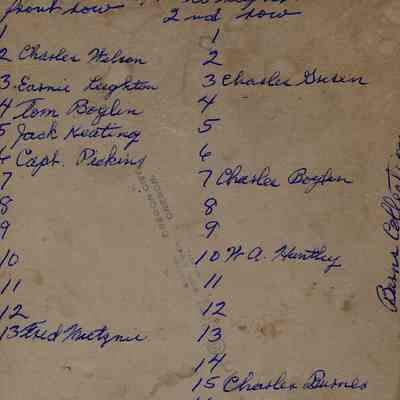 front row
2nd row
1
2 Charles Nelson
3. Earnie Leighton
4 Tom Boylen
5 Jack Keating
6 Capt. Pickins
7
8
9
10
11
12
13 Fred
1
2
3 Charles Green
4
5
6
7 Charles Boylen
8
9
10 W. A. Huntley
11
12
13
14
15 Charles Burnes
OREGON CITY
OREGON
Collection